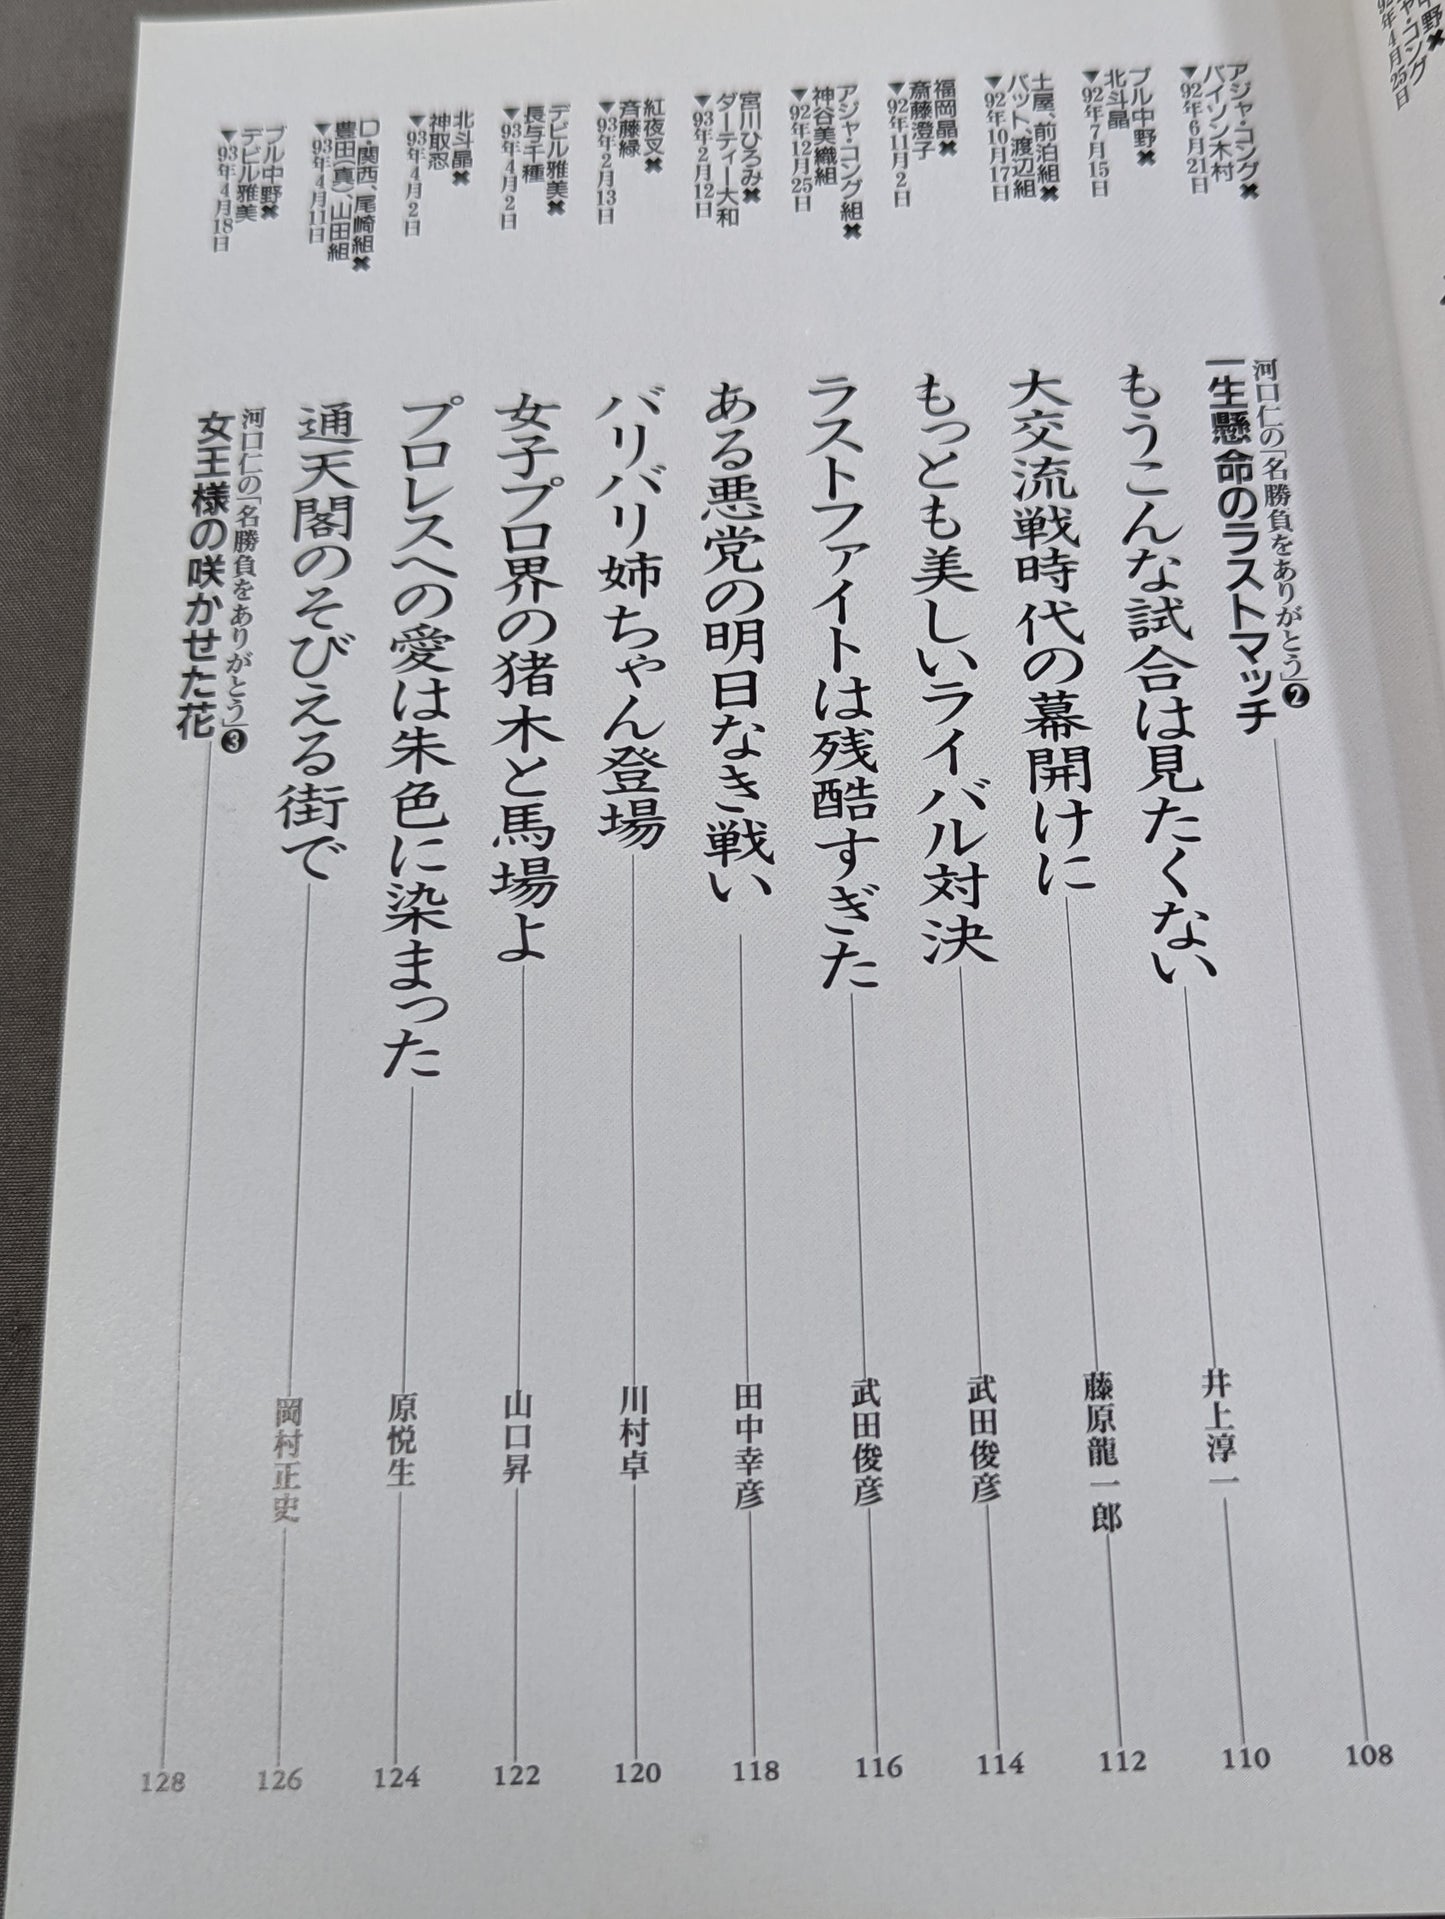 河口仁の「名勝負をありがとう」❷
一生懸命のラストマッチ
108
アジャ・コング✖
バイソン木村
▼92年6月21日
もうこんな試合は見たくない
井上淳一
110
ブル中野✖
北斗晶
▼92年7月15日
大交流戦時代の幕開けに
藤原龍一郎
112
土屋、前泊組✖
バット、渡辺組
▼92年10月17日
もっとも美しいライバル対決
武田俊彦
114
福岡晶✖
斎藤澄子
▼92年11月2日
ラストファイトは残酷すぎた
武田俊彦
116
アジャ・コング組✖
神谷美織組
▼92年12月25日
ある悪党の明日なき戦い
田中幸彦
118
宮川ひろみ✖
ダーティー大和
▼93年2月12日
バリバリ姉ちゃん登場
川村卓
120
紅夜叉✖
斉藤緑
▼93年2月13日
女子プロ界の猪木と馬場よ
山口昇
122
デビル雅美✖
長与千種
▼93年4月2日
プロレスへの愛は朱色に染まった
原悦生
124
北斗晶✖
神取忍
▼93年4月2日
通天閣のそびえる街で
岡村正史
126
D・関西、尾崎組✖
豊田(真)、山田組
▼93年4月11日
河口仁の「名勝負をありがとう」❸
女王様の咲かせた花
128
ブル中野✖
デビル雅美
▼93年4月18日